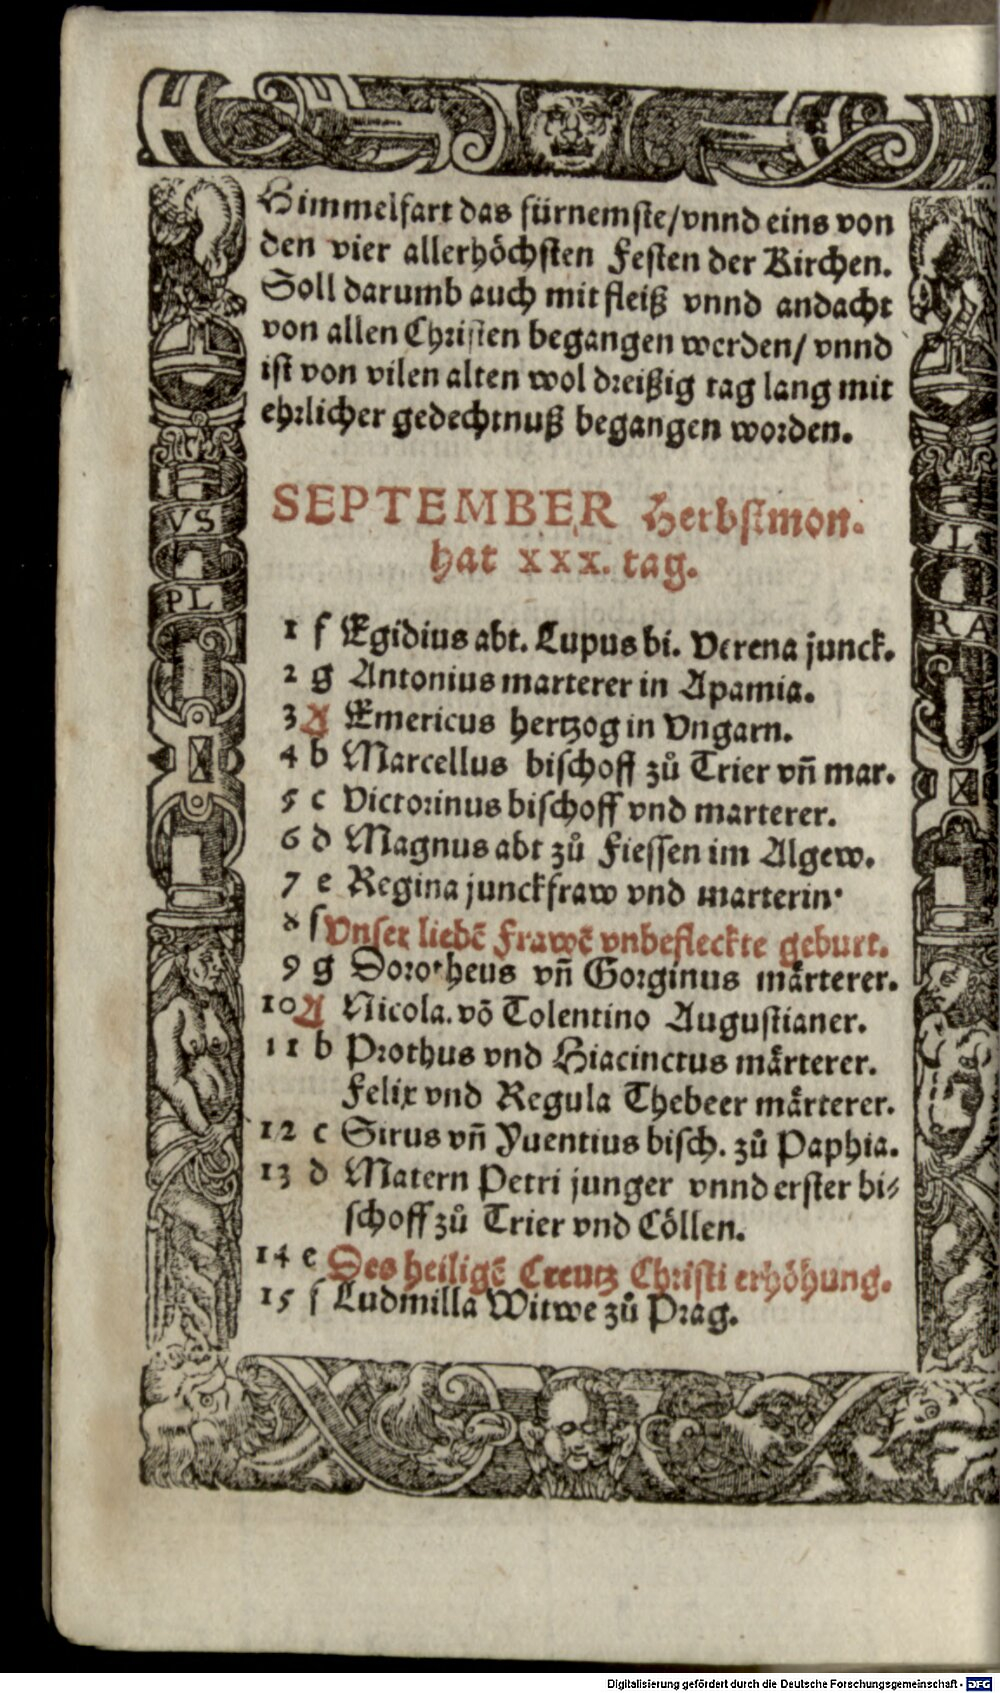 Himmelfart das fürnemste/vnnd eins von
den vier allerhöchsten Festen der Kirchen.
Soll darumb auch mit fleiß vnnd andacht
von allen Christen begangen werden/ vnnd
ist von vilen alten wol dreißig tag lang mit
ehrlicher gedechtnuß begangen worden.
SEPTEMBER Herbstmon.
hat xxx. tag.
1 f Egidius abt. Lupus bi. Verena junck.
2 g Antonius marterer in Apamia.
3 A Emericus hertzog in Vngarn.
4 b Marcellus bischoff zů Trier vñ mar.
5 c Victorinus bischoff vnd marterer.
6 d Magnus abt zů Fiessen im Algew.
7 e Regina junckfraw vnd marterin·
8 f Vnser liebẽ Frawẽ vnbefleckte geburt.
9 g Dorotheus vñ Gorginus mårterer.
10 A Nicola. võ Tolentino Augustianer.
11 b Prothus vnd Hiacinctus mårterer.
Felix vnd Regula Thebeer mårterer.
12 c Sirus vñ Yuentius bisch. zů Paphia.
13 d Matern Petri junger vnnd erster bi⸗
schoff zů Trier vnd Cöllen.
14 e Des heiligẽ Creutz Christi erhöhung.
15 f Ludmilla Witwe zů Prag.
VS
PL
L
RA
Digitalisierung gefördert durch die Deutsche Forschungsgemeinschaft - DFG